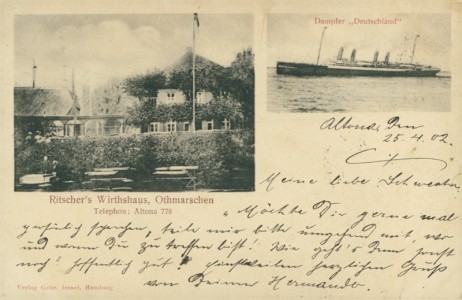 Dampfer „Deutschland"
Altona den
25.4.02.
Meine liebe Schwester
Ritscher's Wirthshaus, Othmarschen
Telephon: Altona 778
„Möchte Dir gerne mal
sprechen, teile mir bitte umgehend mit, wo
und wann Du zu treffen bist! Wie geht's Dir sonst
noch? Hoffentlich gut? Einstweilen herzlichen Gruss
von Deinem Hermando.
Verlag Gebr. Israel, Hamburg